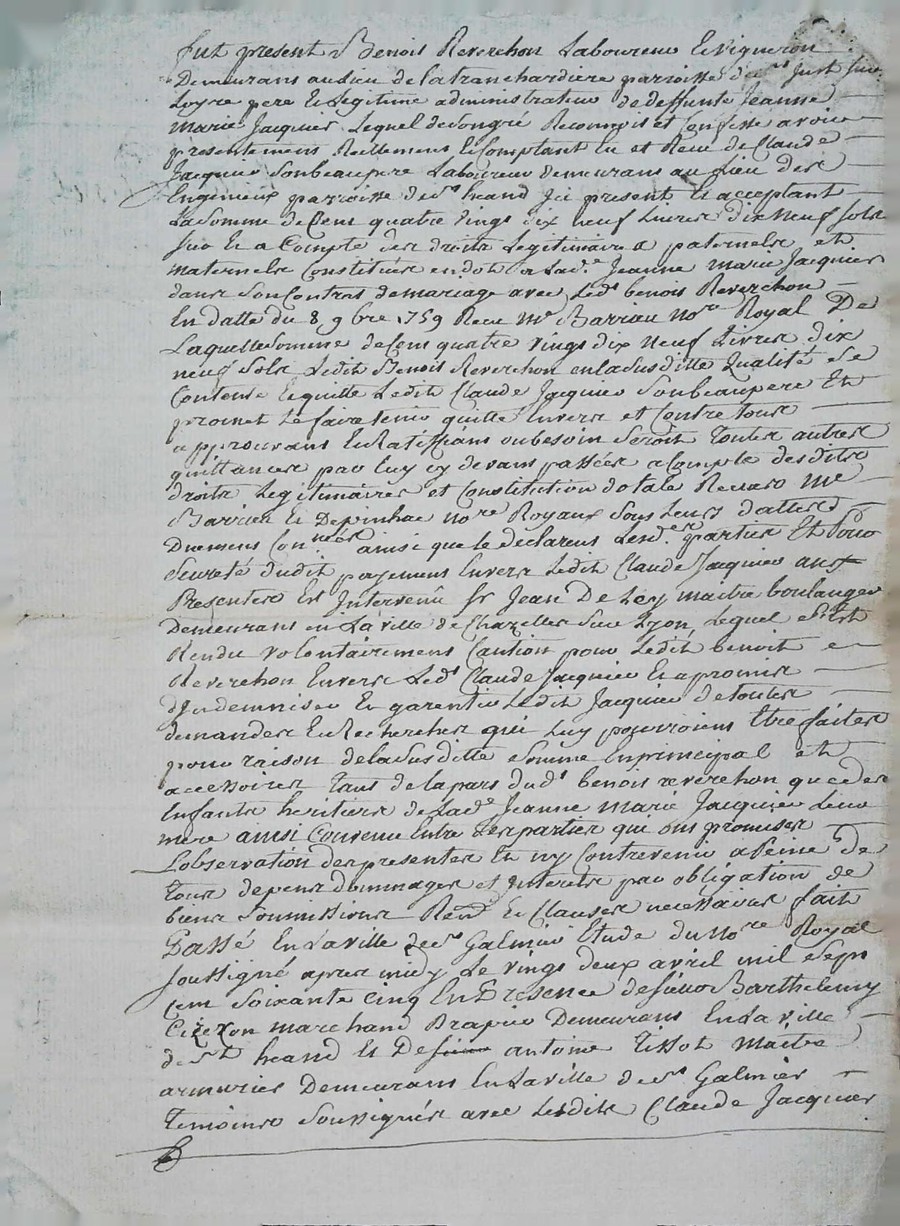 fut present Benois Reverchon Laboureur Et Vigneron
Demeurans au lieu de la tranchardiere parroisse de st Just sur
Loyre pere Et Legitime administrateur de deffunte Jeanne
Marie Jacquier Lequel de Son gré Reconnois et Confesse avoir
presentemens Reellemens Et Comptant eu et Receu de Claude
Jacquier Son beaupere Laboureur demeurans au Lieu des
Engenieux parroisse de st heand Ici present Et acceptant
La Somme de Cens quatre vings dix neuf Livres dix Neuf sols
Sur Et a Compte des droits Legitimaires paternels et
maternels Constitués en dot a Lade. Jeanne Marie Jacquier
dans Son Contrat de mariage avec Ledt benois Reverchon
En datte du 8 9bre 1759 Receu Me Barriau Nore Royal De
Laquelle Somme de Cens quatre vings dix Neuf Livres dix
neuf Sols Ledit Benois Reverchon en la Susditte Qualité Se
Contente Et quitte Ledit Claude Jacquier Son beaupere Et
promet Le faire tenir quitte Envers et Contre tous
approuvans Et Ratiffians ou besoin Seroit Toutes autres
quittances par Luy cy devans passées a Compte desdits
droits Legitimaires et Constitution dotale Receues Me
Barriau Et Depinhac Nore Royaux Sous Leurs dattes
Duemens Connées ainsi que le declarens Lesder parties Et Pour
Seureté dudit payemens Envers Ledit Claude Jacquier aux
Presentes Est Intervenu Sr Jean De Ley maitre boulanger
Demeurans en La ville de Chazelles Sur Lyon Lequel s'Est
Rendu volontairemens Caution pour Ledit benoit
Reverchon Envers Ledt Claude Jacquier Et a promis
d'Indemniser Et garentir Ledit Jacquier de toutes
demandes Et Recherches qui Luy pourroient Etre faites
pour raison de la Susditte Somme En principal et
accessoires Tans de la pars dudt benois reverchon que des
Enfants heritiers de Lade Jeanne Marie Jacquier Leur
mere ainsi Convenu Entre Les parties qui ont promises
L'observation des presentes Et ny Contrevenir a Peine De
tous depens dommages et Interets par obligation de
biens Soumissions Rend Et Clauses necessaires fait
Passé En La ville de st Galmier Etude du Nore Royal
Soussigné apres midy Le vings deux avril mil Sept
Cens Soixante Cinq En Presence de Sieur Barthelemy
Cizeron marchand Drapier Demeurans En La ville
de st heand Et De antoine Tissot Maitre
armurier Demeurans En La ville de st Galmier
Temoins Soussignés avec Ledit Claude Jacquier